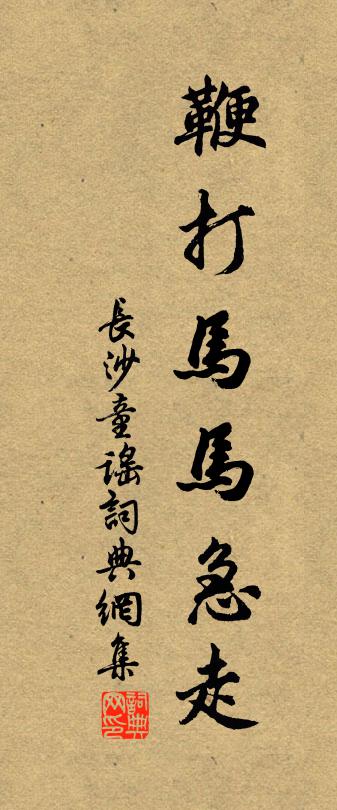 鞭打馬馬急走
長沙童謠詞典網集
詞典網印